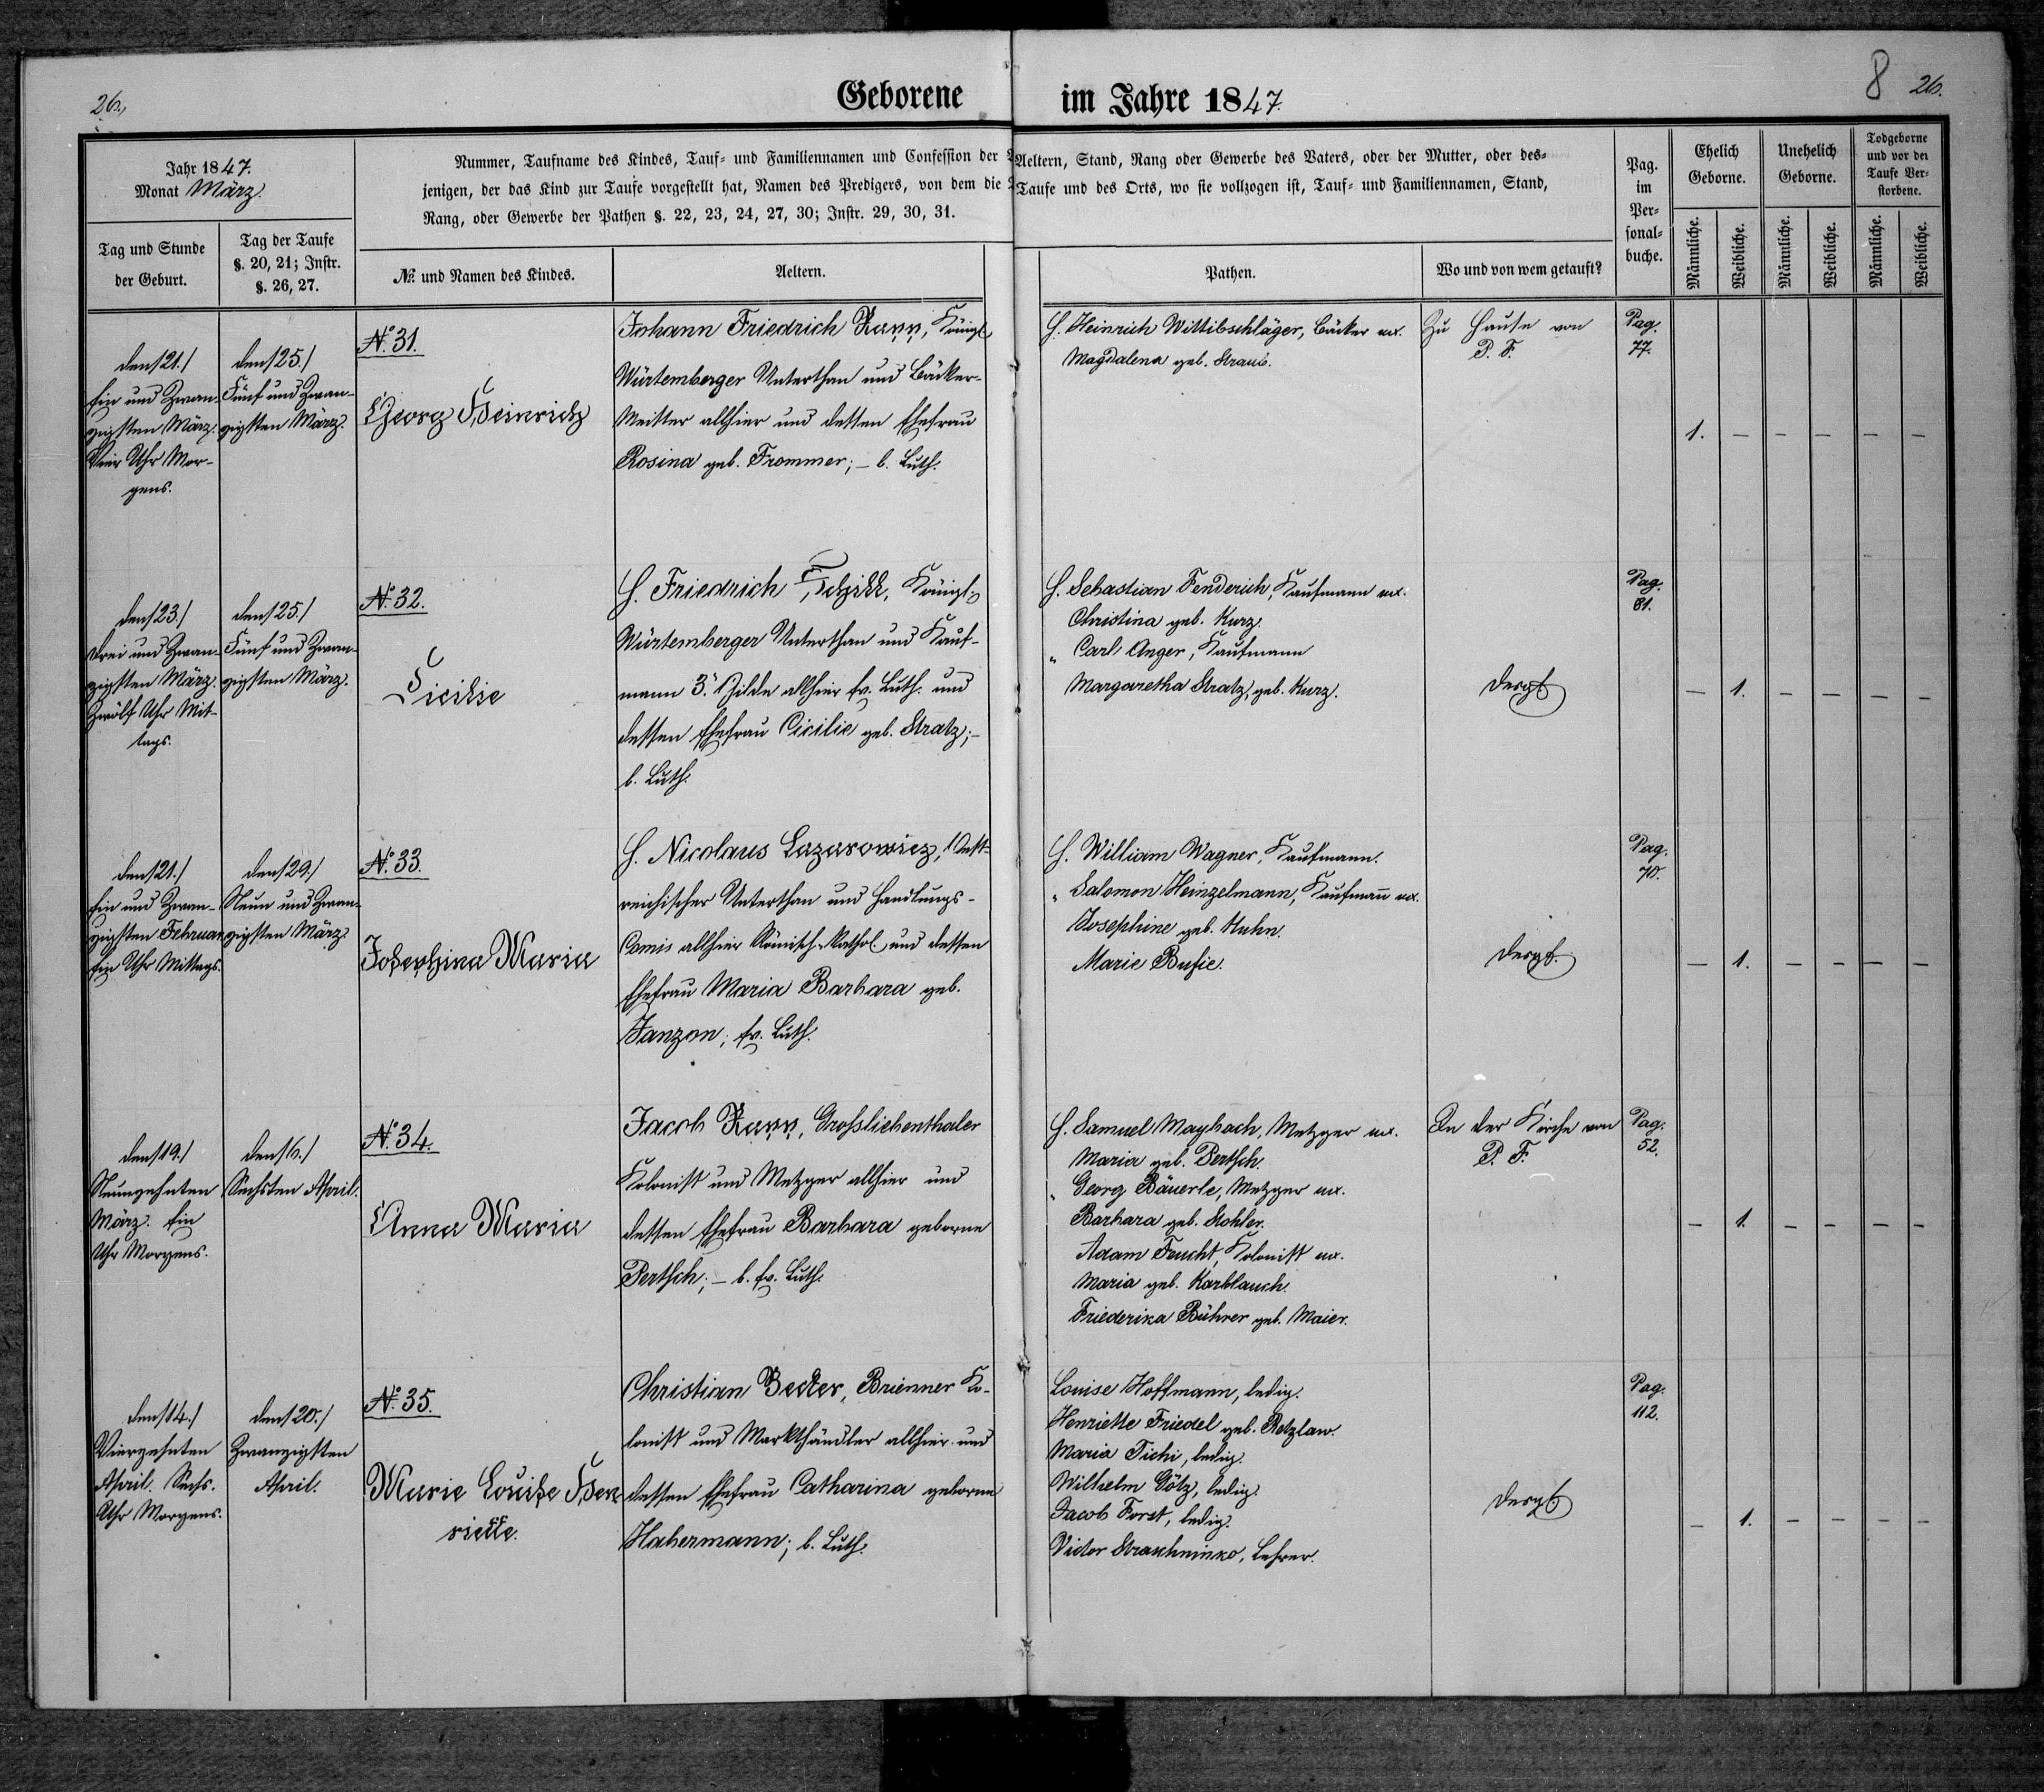 26.
Geborene im Jahre 1847.
8 26.
Jahr 1847.
Monat März.
Nummer, Taufname des Kindes, Tauf- und Familiennamen und Confession der Aeltern, Stand, Rang oder Gewerbe des Vaters, oder der Mutter, oder des-
jenigen, der das Kind zur Taufe vorgestellt hat, Namen des Predigers, von dem die Taufe und des Orts, wo sie vollzogen ist, Tauf- und Familiennamen, Stand,
Rang, oder Gewerbe der Pathen §. 22, 23, 24, 27, 30; Instr. 29, 30, 31.
Tag und Stunde
der Geburt.
Tag der Taufe
§. 20, 21; Instr.
§. 26, 27.
№ und Namen des Kindes.
Aeltern.
Pathen.
Wo und von wem getauft?
Pag.
im
Per-
sonal-
buche.
Ehelich
Geborne.
Unehelich
Geborne.
Todgeborne
und vor der
Taufe Ver-
storbene.
Männliche.
Weibliche.
Männliche.
Weibliche.
Männliche.
Weibliche.
den 21./
Ein und Zwan-
zigsten März.
Vier Uhr Mor-
gens.
den 25./
Fünf und Zwan-
zigsten März.
N. 31.
Georg Heinrich
Johann Friedrich Rapp, Königl.
Würtemberger Unterthan und Bäcker-
Meister allhier und dessen Ehefrau
Rosina geb. Frommer; – b. Luth.
H. Heinrich Wittibschläger, Bäcker ux.
Magdalena geb. Straub.
Zu Hause von
P. F.
Pag.
77.
1. – – – – –
den 23./
Drei und Zwan-
zigsten März.
Zwölf Uhr Mit-
tags.
den 25./
Fünf und Zwan-
zigsten März.
N. 32.
Cicilie
H. Friedrich Königl.
Würtemberger Unterthan und Kauf-
mann 3. Gilde allhier Ev. Luth. und
dessen Ehefrau Cicilie geb. Stratz; –
b. Luth.
H. Sebastian Fenderich, Kaufmann ux.
Christina geb. Kurz.
„ Carl Anger, Kaufmann
Margaretha Stratz, geb. Kurz.
Desgl.
Pag.
81.
– 1. – – – –
den 21./
Ein und Zwan-
zigsten Februar
Ein Uhr Mittags.
den 29./
Neun und Zwan-
zigsten März.
N. 33.
Josephina Maria
H. Nicolaus Lazarowicz, Oest-
reichischer Unterthan und Handlungs-
Comis allhier Römisch-Kathol. und dessen
Ehefrau Maria Barbara geb.
Janzon; Ev. Luth.
H. William Wagner, Kaufmann.
„ Salomon Heinzelmann, Kaufmann ux.
Josephine geb. Kuhn.
Marie Busie.
Desgl.
Pag.
70.
– 1. – – – –
den 19./
Neunzehnten
März. Ein
Uhr Morgens.
den 6./
Sechsten April.
N. 34.
Anna Maria
Jacob Rapp, Grossliebenthaler
Kolonist und Metzger allhier und
dessen Ehefrau Barbara geborne
Pertsch; – b. Ev. Luth.
H. Samuel Maybach, Metzger ux.
Maria geb. Pertsch.
„ Georg Bäuerle, Metzger ux.
Barbara geb. Stohler.
Adam Feucht, Kolonist ux.
Maria geb. Karblauch.
Friederika Bührer geb. Maier.
In der Kirche von
P. F.
Pag.
52.
– 1. – – – –
den 14./
Vierzehnten
April. Sechs.
Uhr Morgens.
den 20./
Zwanzigsten
April.
N. 35.
Marie Louise Hen-
riette.
Christian Becker, Brienner Ko-
lonist und Markthändler allhier und
dessen Ehefrau Catharina geborne
Habermann; b. Luth.
Louise Hoffmann, ledig.
Henriette Friedel geb. Retzlaw.
Maria Tichi, ledig.
Wilhelm Götz, ledig.
Jacob Forst, ledig.
Victor Straschninko, Lehrer.
Desgl.
Pag.
112.
– 1. – – – –